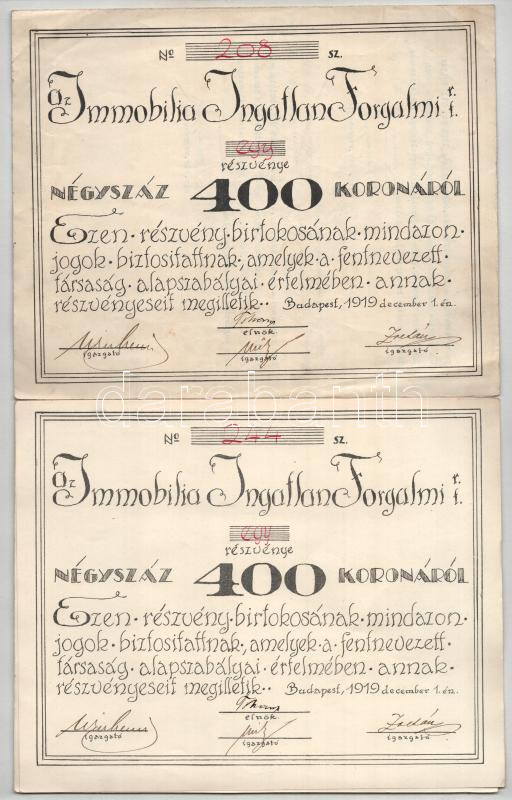 № 208 sz.
az Immobilia Ingatlan Forgalmi r. t.
egy
részvénye
NÉGYSZÁZ 400 KORONÁRÓL
Ezen · részvény · birtokosának · mindazon ·
jogok · biztosittattnak ·, amelyek · a · fentnevezett ·
társaság · alapszabályai · értelmében · annak ·
részvényeseit megilletik · · Budapest, 1919 december 1. én.
elnök.
igazgató igazgató igazgató
darabanth
№ 244 sz.
az Immobilia Ingatlan Forgalmi r. t.
egy
részvénye
NÉGYSZÁZ 400 KORONÁRÓL
Ezen · részvény · birtokosának · mindazon ·
jogok · biztosittattnak ·, amelyek · a · fentnevezett ·
társaság · alapszabályai · értelmében · annak ·
részvényeseit megilletik · · Budapest, 1919 december 1. én.
elnök.
igazgató igazgató igazgató